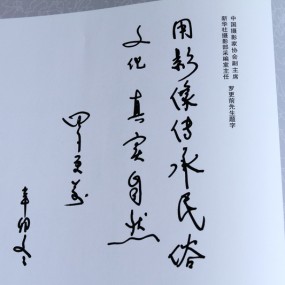 中国摄影家协会副主席
新华社摄影部采编室主任 罗更前先生题字
用影像传承民俗
文化 真实自然
罗更前
辛卯冬